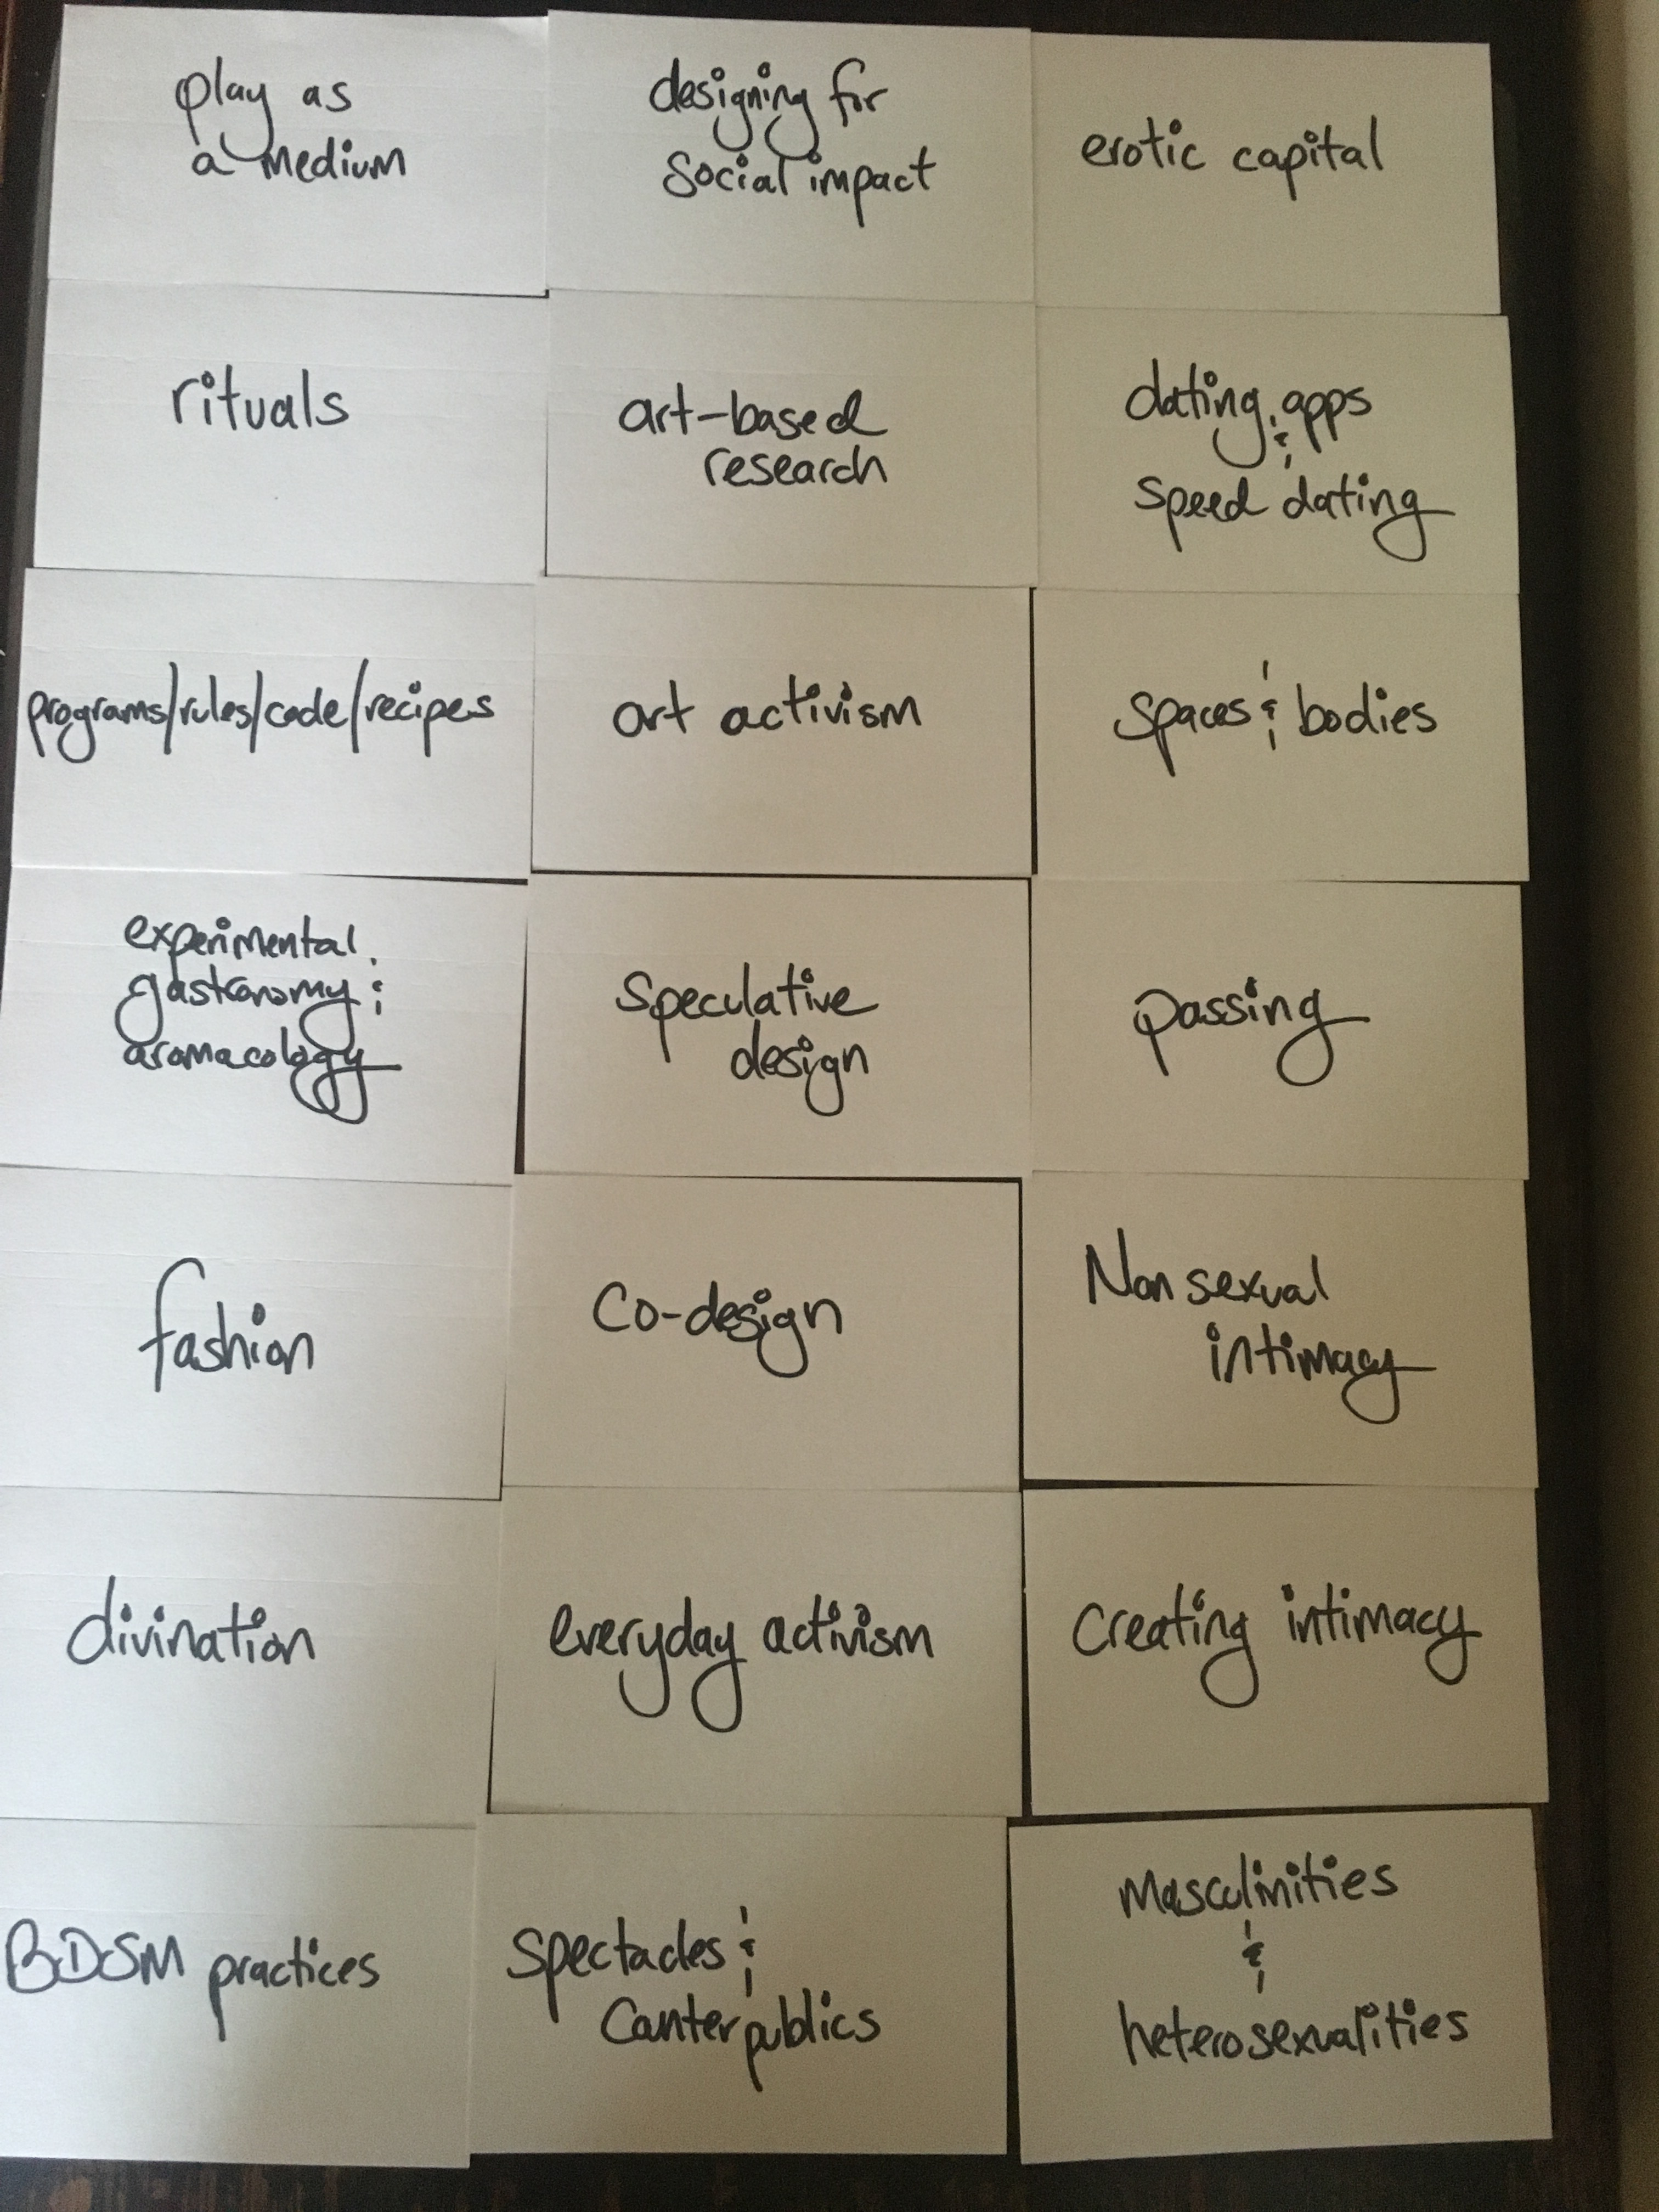 play as
a medium
designing for
social impact
erotic capital
rituals
art-based
research
dating apps
&
speed dating
programs/rules/code/recipes
art activism
spaces & bodies
experimental
gastronomy &
aromacology
speculative
design
passing
fashion
Co-design
Non sexual
intimacy
divination
everyday activism
Creating intimacy
BDSM practices
Spectacles &
Counterpublics
Masculinities
&
heterosexualities